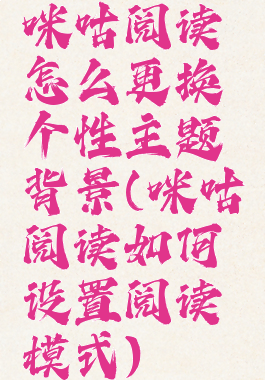 咪咕阅读
怎么更换
个性主题
背景(咪咕
阅读如何
设置阅读
模式)